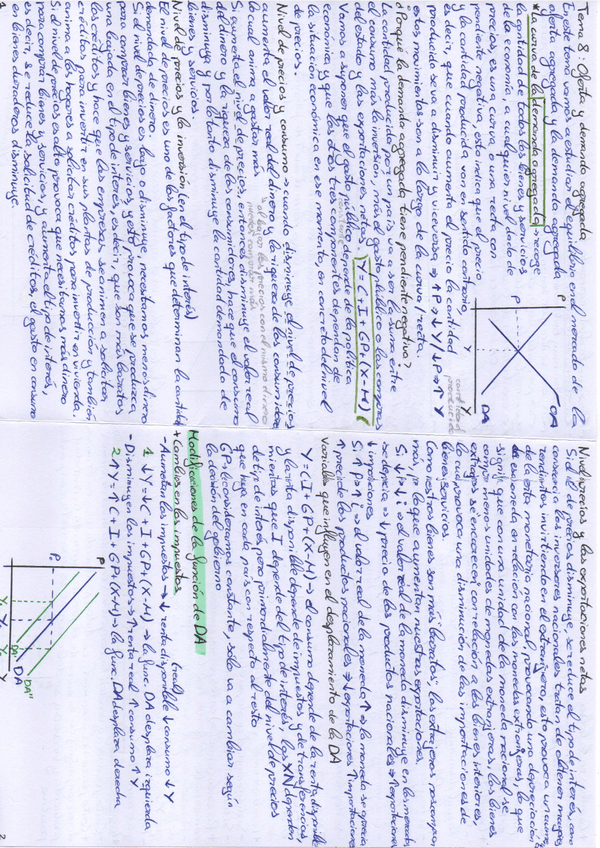 Tema 8: Oferta y demanda agregada
En este tema vamos a estudiar el equilibrio en el mercado de la
oferta agregada y la demanda agregada
*La curva de la demanda agregada, recoge
la cantidad de todos los bienes y servicios
de la economía, a cualquier nivel dado de
precios, es una curva o una recta con
pendiente negativa, esto indica que el precio
y la cantidad producida van en sentido contrario
es decir, que cuando aumenta el precio la cantidad
producida se va a disminuir y viceversa ⇒ ↑P ⇒ ↓Y / ↓P ⇒ ↑Y
estos movimientos son a lo largo de la curva / recta.
cantidad producida
P
OA
P
Y
DA
Y
¿Porque la demanda agregada tiene pendiente negativa?
La cantidad producida por un país va a ser la suma entre
el consumo más la inversión, más el gasto público o las compras
del estado y las exportaciones netas. Y = C + I + GP + (X-M)
Vamos a suponer que el gasto público depende de la política
económica, y que las otras tres componentes dependan de
la situación económica en ese momento, en concreto del nivel
de precios.
Nivel de precios y consumo → cuando disminuye el nivel de precios
aumenta el valor real del dinero y la riqueza de los consumidores
lo cual anima a gastar más
Si aumenta el nivel de precios, sucede que disminuye el valor real
del dinero y la riqueza de los consumidores, hace que el consumo
disminuya y por lo tanto disminuye la cantidad demandada de
bienes y servicios
Nivel de precios y la inversión (en el tipo de interés)
El nivel de precios es uno de los factores que determinan la cantidad
demandada de dinero.
Si el nivel de precios es bajo o disminuye, necesitamos menos dinero
para comprar bienes y servicios, y esto provoca que se produzca
una bajada en el tipo de interés, es decir, que son más baratos
los créditos y hace que las empresas se animen a solicitar
créditos para invertir en sus plantas de producción y también
anima a los hogares a solicitar créditos para invertir en vivienda,
Si el nivel de precios es alto provoca que necesitemos más dinero
para comprar bienes y servicios, y aumenta el tipo de interés,
es decir, se reduce la solicitud de créditos, el gasto en consumo
en bienes duraderos disminuye.
Nivel precios y las exportaciones netas
Si el nivel de precios disminuye, se reduce el tipo de interés, como
consecuencia los inversores nacionales tratan de obtener mayores
rendimientos invirtiendo en el extranjero, esto provoca un aumento
de la oferta monetaria nacional, provocando una depreciación de
la moneda en relación con las monedas extranjeras, lo que
significa que con una unidad de la moneda nacional se
compra menos unidades de monedas extranjeras, los bienes
extranjeros se encarecen con relación a los bienes interiores
lo cual provoca una disminución de las importaciones de
bienes y servicios.
Como nuestros bienes son más "baratos", los extranjeros nos compran
más, por lo que aumentan nuestras exportaciones.
Si ↓P ⇒ ↓i ⇒ el valor real de la moneda disminuye en los mercados
se deprecia ⇒ ↓precio de los productos nacionales ⇒ ↑exportaciones
↓importaciones
Si ↑P ⇒ ↑i ⇒ el valor real de la moneda ↑ ⇒ la moneda se aprecia
↑precio de los productos nacionales ⇒ ↓exportaciones ↑importaciones
variables que influyen en el desplazamiento de la DA
Y = C + I + GP + (X-M) → el consumo depende de la renta disponible
y la renta disponible depende de impuestos y de transferencias,
mientras que I depende del tipo de interés, las XN dependen
del tipo de interés pero primordialmente del nivel de precios
que haya en cada país con respecto al resto
GP, lo consideramos constante, solo va a cambiar según
la decisión del gobierno
Modificaciones de la función de DA
* Cambios en los impuestos
- Aumentan los impuestos → ↓ renta disponible ↓consumo ↓Y
(real)
1 ↓Y = ↓C + I + GP + (X-M) → la func. DA desplaza izquierda
- Disminuyen los impuestos → ↑ renta real ↑consumo ↑Y
2 ↑Y = ↑C + I + GP + (X-M) → la func. DA desplaza derecha
P
P
DA'
DA
DA''
Y
2